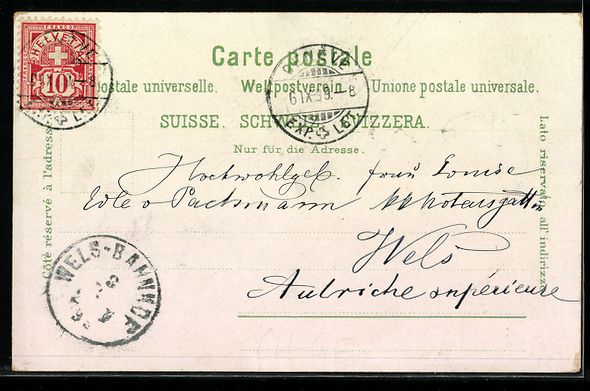 HELVETIA
FRANCO
10
Carte postale
GENÈVE
6 IX.99.-8
EXP. LET.
postale universelle. Weltpostverein. Unione postale universale.
SUISSE. SCHWEIZ. SVIZZERA.
Nur für die Adresse.
Côté réservé à l'adresse.
Lato riservato all'indirizzo.
Hochwohlgeb. frau Louise
Edle v Pachmann
Wels
Autriche supérieure
WELS-BAHNHOF